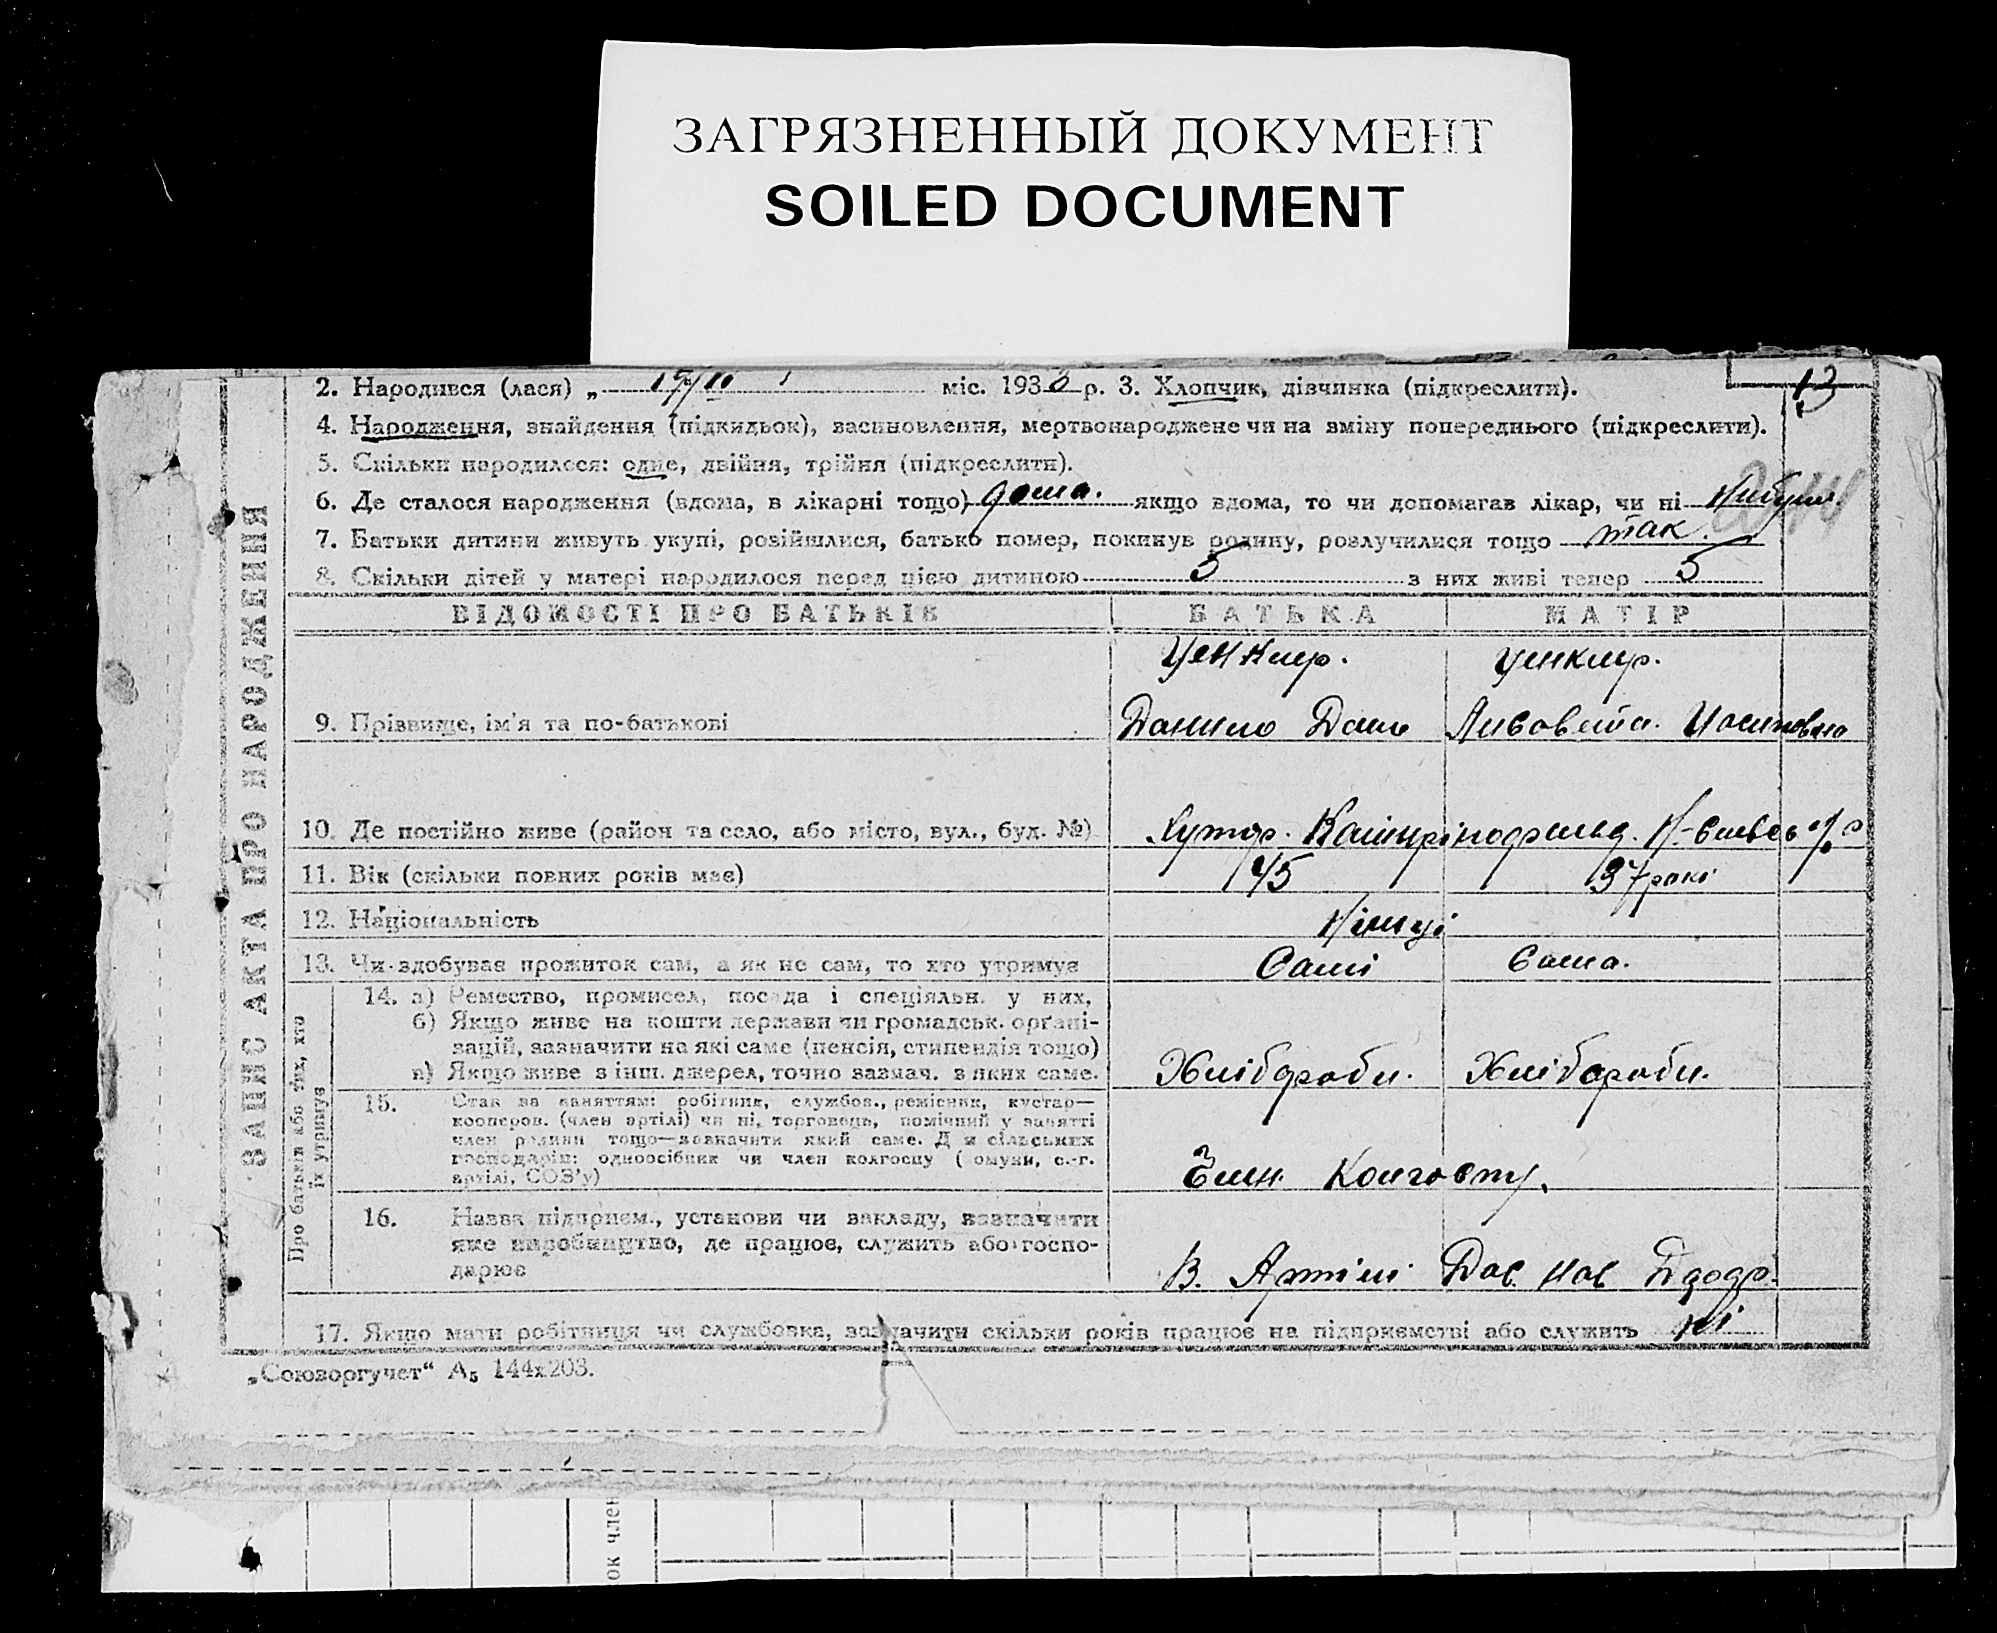 ЗАГРЯЗНЕННЫЙ ДОКУМЕНТ
SOILED DOCUMENT
13
2. Народився (лася) „ міс. 1933 р. 3. Хлопчик, дівчинка (підкреслити).
4. Народження, знайдення (підкидьок), васиновлення, мертвонароджене чи на зміну попереднього (підкреслити).
5. Скільки народилося: одне, двійня, трійня (підкреслити).
6. Де сталося народження (вдома, в лікарні тощо) дома. якщо вдома, то чи допомагав лікар, чи ні
7. Батьки дитини живуть укупі, розійшлися, батько помер, покинув родину, розлучилися тощо так.
8. Скільки дітей у матері народилося перед цією дитиною 5 з них живі тепер 5
ЗАПИС АКТА ПРО НАРОДЖЕННЯ
ВІДОМОСТІ ПРО БАТЬКІВ БАТЬКА МАТІР
Ценкер. Ценкер.
9. Прізвище, ім'я та по-батькові Данило Дани
10. Де постійно живе (район та село, або місто, вул., буд. №) Хутор.
11. Вік (скільки повних років має) 45 37 рокі
12. Національність Німці
13. Чи здобуває прожиток сам, а як не сам, то хто утримує Самі Сама.
Про батьків або тих, хто їх утримує
14. а) Ремество, промисел, посада і спеціяльн. у них,
б) Якщо живе на кошти держави чи громадськ. органі-
зацій, зазначити на які саме (пенсія, стипендія тощо)
в) Якщо живе з інш. джерел, точно зазнач. з яких саме. Хліброби. Хліброби.
15. Стан за заняттям: робітник, службов., ремісник, кустар—
кооперов. (член артілі) чи ні, торговець, помічний у занятті
член родини тощо—зазначити який саме. Для сільських
господарів: одноосібник чи член колгоспу (комуни, с.-г.
артілі, СОЗ'у) Член Колгоспу.
16. Назва підприєм., установи чи закладу, зазначити
яке виробництво, де працює, служить або госпо-
дарює В. Артілі
17. Якщо мати робітниця чи службовка, зазначити скільки років працює на підприємстві або служить ні
„Союзоргучет" А₅ 144х203.